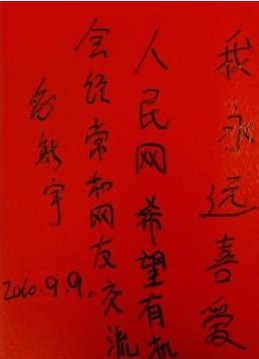 我永远喜爱
人民网希望有机
会经常和网友交流
舒新宇
2010.9.9.